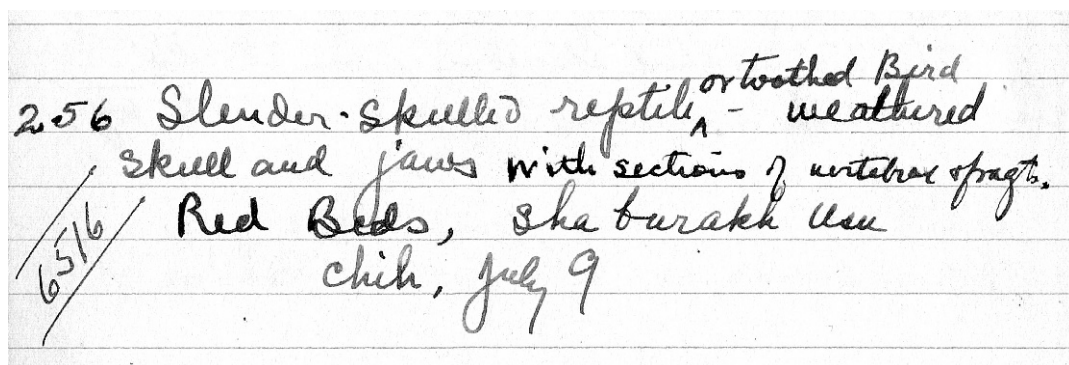 256 Slender-skulled reptile ^ or toothed Bird - weathered
skull and jaws with sections of vertebrae & fragts.
Red Beds, Sha barakh Usu
Chih, July 9
6516